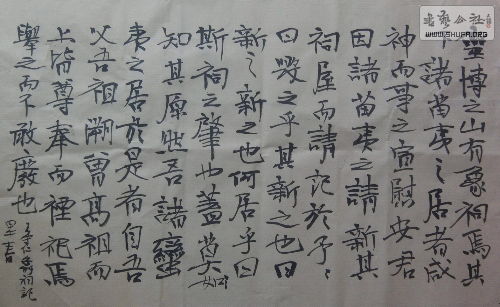 靈博之山有象祠焉其
下諸苗夷之居者咸
神而事之宣慰安君
因諸苗夷之請新其
祠屋而請記於予〻
曰毀之乎其新之也曰
新之新之也何居乎曰
斯祠之肇也蓋莫
知其原然吾諸蠻
夷之居於是者自吾
父吾祖溯曾高祖而
上皆尊奉而禋祀焉
舉之而不敢廢也
祠記
書藝公社
WWW.SHUFA.ORG